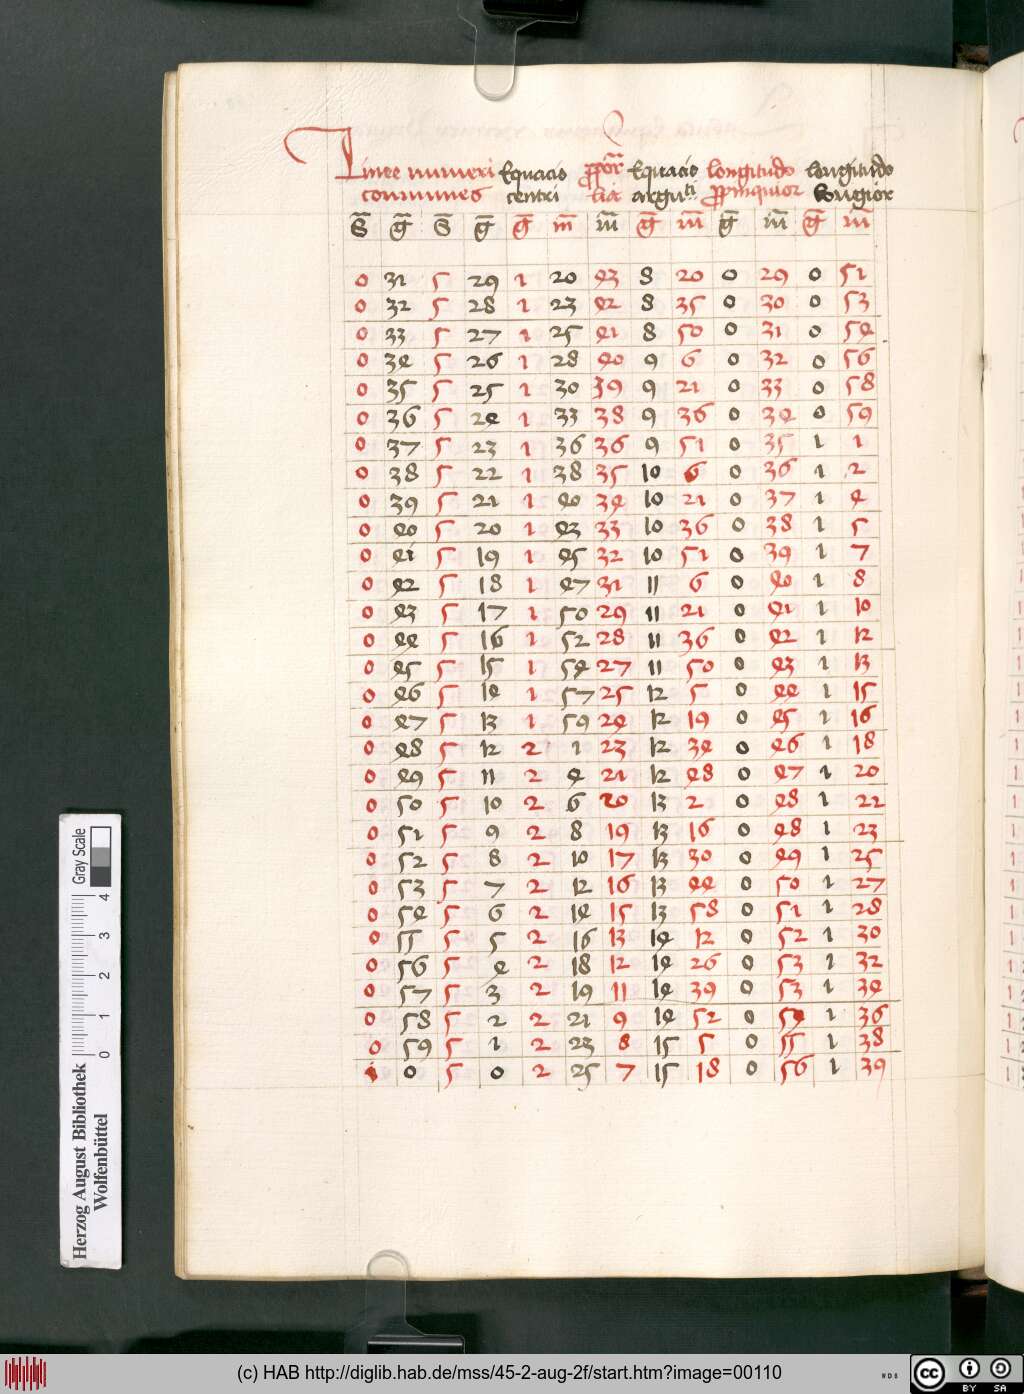 Linee numeri Equacio ꝓpor Equacio longitudo longitudo
comunes centri lia arguti ꝓpinquior longior
S g S g g m m g m g m g m
0 31 5 29 1 20 43 8 20 0 29 0 51
0 32 5 28 1 23 42 8 35 0 30 0 53
0 33 5 27 1 25 41 8 50 0 31 0 54
0 34 5 26 1 28 40 9 6 0 32 0 56
0 35 5 25 1 30 39 9 21 0 33 0 58
0 36 5 24 1 33 38 9 36 0 34 0 59
0 37 5 23 1 36 36 9 51 0 35 1 1
0 38 5 22 1 38 35 10 6 0 36 1 2
0 39 5 21 1 40 34 10 21 0 37 1 4
0 40 5 20 1 43 33 10 36 0 38 1 5
0 41 5 19 1 45 32 10 51 0 39 1 7
0 42 5 18 1 47 31 11 6 0 40 1 8
0 43 5 17 1 50 29 11 21 0 41 1 10
0 44 5 16 1 52 28 11 36 0 42 1 12
0 45 5 15 1 54 27 11 50 0 43 1 13
0 46 5 14 1 57 25 12 5 0 44 1 15
0 47 5 13 1 59 24 12 19 0 45 1 16
0 48 5 12 2 1 23 12 34 0 46 1 18
0 49 5 11 2 4 21 12 48 0 47 1 20
0 50 5 10 2 6 20 13 2 0 48 1 22
0 51 5 9 2 8 19 13 16 0 48 1 23
0 52 5 8 2 10 17 13 30 0 49 1 25
0 53 5 7 2 12 16 13 44 0 50 1 27
0 54 5 6 2 14 15 13 58 0 51 1 28
0 55 5 5 2 16 13 14 12 0 52 1 30
0 56 5 4 2 18 12 14 26 0 53 1 32
0 57 5 3 2 19 11 14 39 0 53 1 34
0 58 5 2 2 21 9 14 52 0 54 1 36
0 59 5 1 2 23 8 15 5 0 55 1 38
1 0 5 0 2 25 7 15 18 0 56 1 39
Gray Scale
0 1 2 3 4
Herzog August Bibliothek
Wolfenbüttel
(c) HAB http://diglib.hab.de/mss/45-2-aug-2f/start.htm?image=00110
cc BY SA